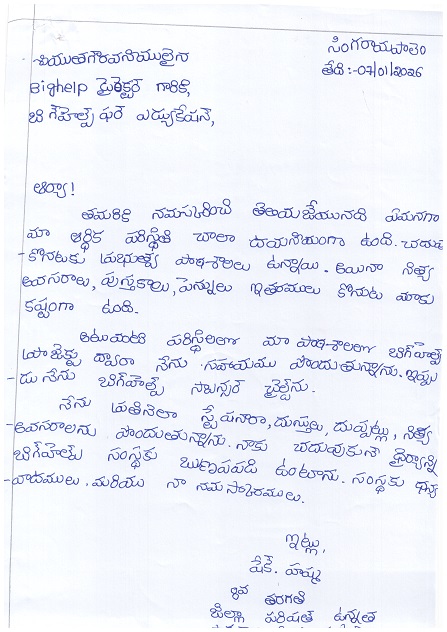 సింగరాయపాలెం
తేది:-07/01/2026
శ్రీయుతగౌరవనీయులైన
Bighelp డైరెక్టర్ గారికి,
బిగ్‌హెల్ప్ ఫర్ ఎడ్యుకేషన్,
ఆర్యా!
తమరికి నమస్కరించి తెలియజేయునది ఏమనగా
మా ఆర్థిక పరిస్థితి చాలా దయనీయంగా ఉంది. చదువు
-కొనుటకు ప్రభుత్వ పాఠశాలలు ఉన్నాయి. అయినా నిత్య
అవసరాలు, పుస్తకాలు, పెన్నులు ఇతరములు కొనుట మాకు
కష్టంగా ఉంది.
ఇటువంటి పరిస్థితిలలో మా పాఠశాలలో బిగ్‌హెల్ప్
ప్రాజెక్టు ద్వారా నేను సహాయము పొందుతున్నాను. ఇప్పు
-డు నేను బిగ్‌హెల్ప్ స్పాన్సర్ చైల్డ్‌ను.
నేను ప్రతినెలా స్టేషనరీ, దుస్తులు, దుప్పట్లు, నిత్య
-అవసరాలను పొందుతున్నాను. నాకు చదువుకునే ధైర్యాన్ని
బిగ్‌హెల్ప్ సంస్థకు ఋణపడి ఉంటాను. సంస్థకు ధన్య
-వాదములు. మరియు నా నమస్కారములు.
ఇట్లు,
షేక్.
8వ తరగతి
జిల్లా పరిషత్ ఉన్నత